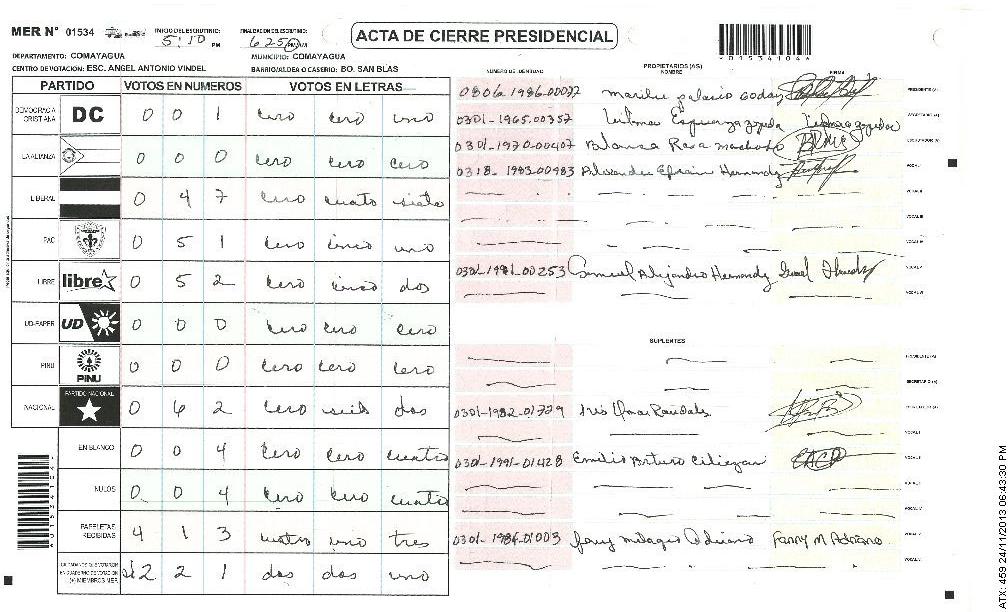 MER N° 01534 INICIO DEL ESCRUTINIO: 5:10 PM FINALIZACION ESCRUTINIO: 6 25 PM ACTA DE CIERRE PRESIDENCIAL
DEPARTAMENTO: COMAYAGUA MUNICIPIO: COMAYAGUA
CENTRO DE VOTACION: ESC. ANGEL ANTONIO VINDEL BARRIO/ALDEA O CASERIO: BO. SAN BLAS
PARTIDO VOTOS EN NUMEROS VOTOS EN LETRAS
DEMOCRACIA CRISTIANA DC 0 0 1 cero cero uno
LA ALIANZA 0 0 0 cero cero cero
LIBERAL 0 4 7 cero cuato siete
PAC 0 5 1 cero cinco uno
LIBRE libre 0 5 2 cero cinco dos
UD-FAPER UD 0 0 0 cero cero cero
PINU PINU 0 0 0 cero cero cero
NACIONAL PARTIDO NACIONAL 0 6 2 cero seis dos
EN BLANCO 0 0 4 cero cero cuatro
NULOS 0 0 4 cero cero cuatro
PAPELETAS RECIBIDAS 4 1 3 cuatro uno tres
2 2 1 dos dos uno
NUMERO DE IDENTIDAD PROPIETARIOS (AS) NOMBRE FIRMA
PRESIDENTE (A)
0301-1965.00357 SECRETARIO (A)
0301-1970-00407 Blanca Rosa
0318-1983-00983 Efrain Hernandez VOCAL I
VOCAL II
VOCAL III
VOCAL IV
0301-1981-00253 Samuel Alejandro Hernandez VOCAL V
VOCAL VI
SUPLENTES
PRESIDENTE (A)
SECRETARIO (A)
0301-1982-01729 Iris Omar
VOCAL I
0301-1991-01428 Emilio Arturo VOCAL II
VOCAL III
VOCAL IV
0301-1986-01003 Fanny M Adriano VOCAL V
VOCAL VI
ATX: 459 24/11/2013 06:43:30 PM